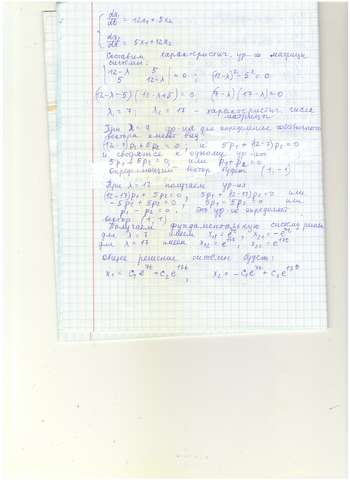 dx₁/dt = 12x₁ + 5x₂
dx₂/dt = 5x₁ + 12x₂
Составим характеристич. ур-ие матрицы
системы:
|12-λ 5; 5 12-λ| = 0 ; (12-λ)² - 5² = 0
(12-λ-5)(12-λ+5) = 0 (7-λ)(17-λ) = 0
λ₁ = 7; λ₂ = 17 - характеристич. числа
матрицы
При λ = 7 ур-ия для определения собственного
вектора имеют вид
(12-7)p₁ + 5p₂ = 0, и 5p₁ + (12-7)p₂ = 0
и сводятся к одному ур-ию
5p₁ + 5p₂ = 0, или p₁ + p₂ = 0.
вектор будет (1, -1)
При λ = 17 получаем ур-ия
(12-17)p₁ + 5p₂ = 0, 5p₁ + (12-17)p₂ = 0 или
-5p₁ + 5p₂ = 0, 5p₁ - 5p₂ = 0 или
p₁ - p₂ = 0. Это ур-ие определяет
вектор (1, 1)
Получаем фундаментальную систему решен.
для λ = 7 имеем x₁₁ = e⁷ᵗ, x₂₁ = -e⁷ᵗ
для λ = 17 имеем x₁₂ = e¹⁷ᵗ, x₂₂ = e¹⁷ᵗ
Общее решение системы будет:
x₁ = C₁e⁷ᵗ + C₂e¹⁷ᵗ, x₂ = -C₁e⁷ᵗ + C₂e¹⁷ᵗ